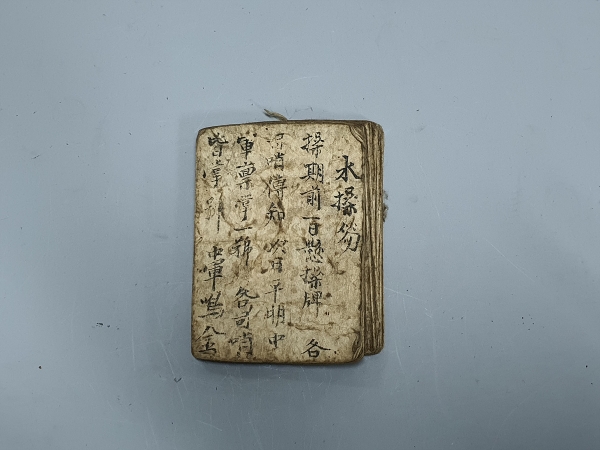 水操笏
操期前一日懸操牌 各
將哨傳知 次日平明中
軍稟掌一號 各司哨
皆掌號 中軍鳴金